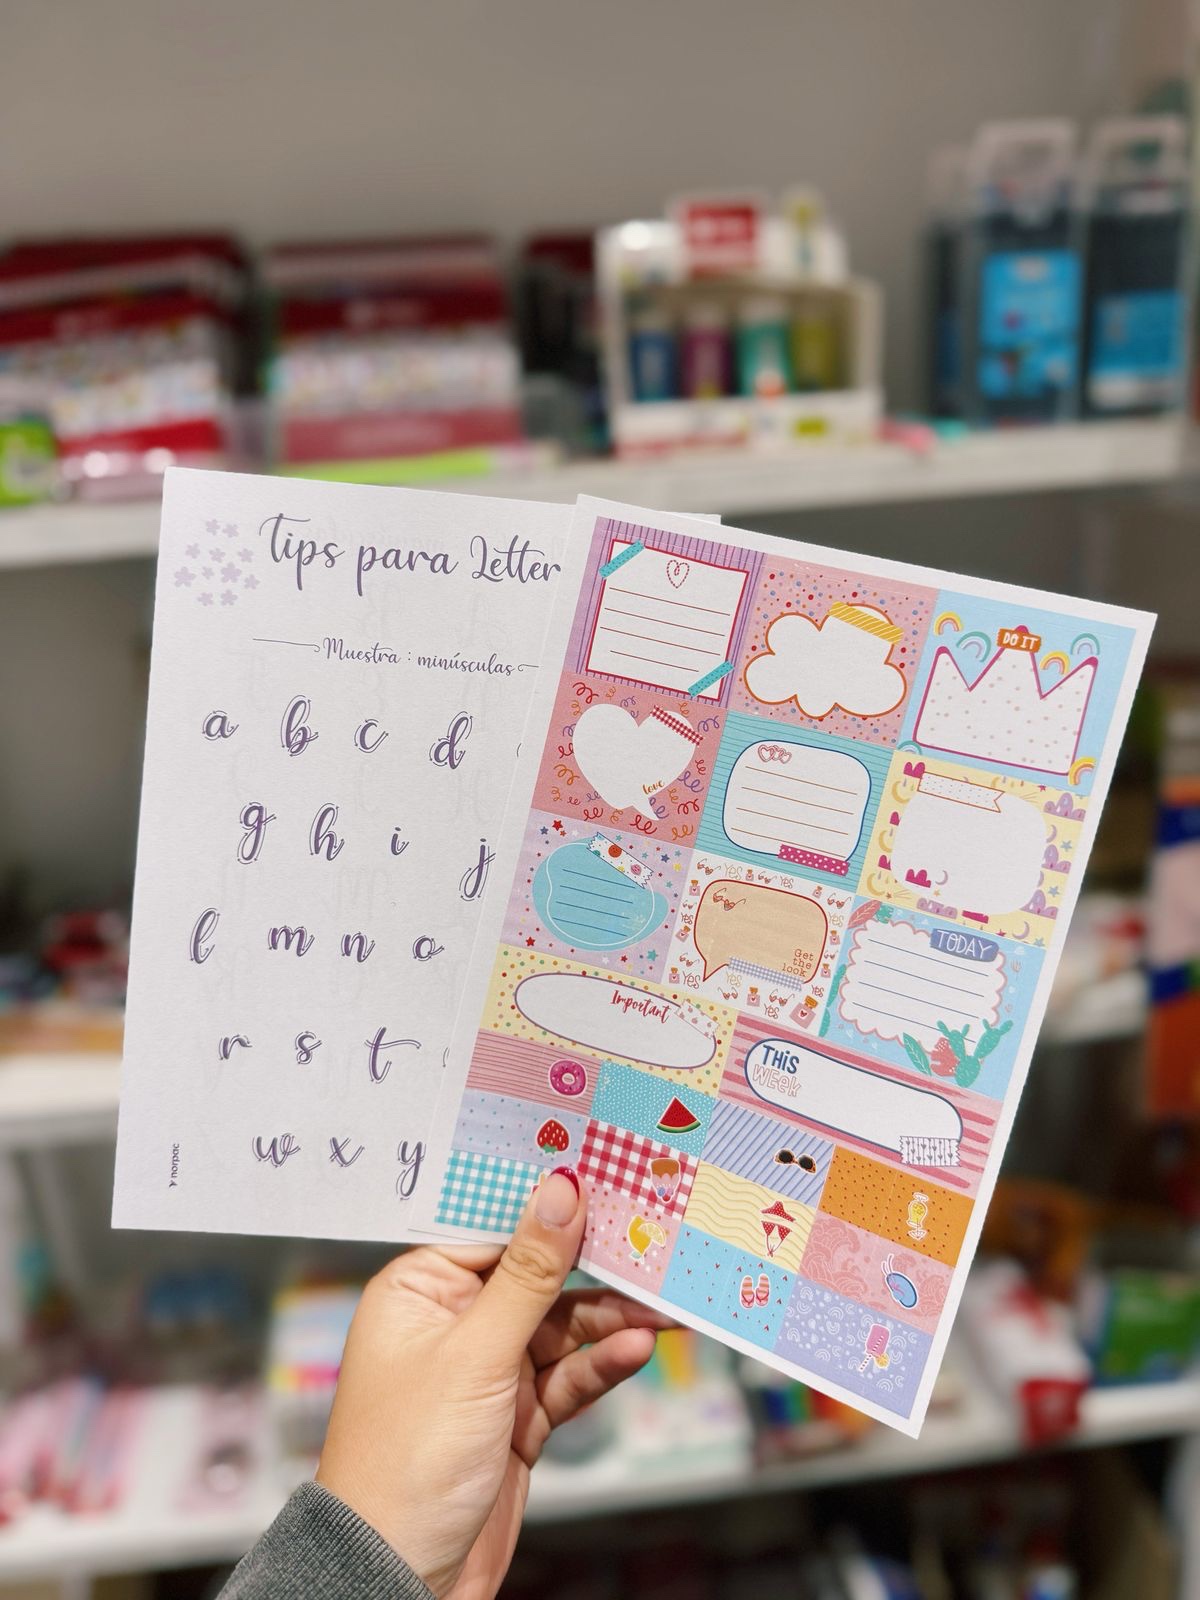 Tips para Letter
Muestra : minúsculas
a b c d
g h i j
l m n o
r s t
w x y
norpac
DO IT
love
Get
the
look
yes
yes
yes
yes
yes
yes
TODAY
Important
THIS
WEEK